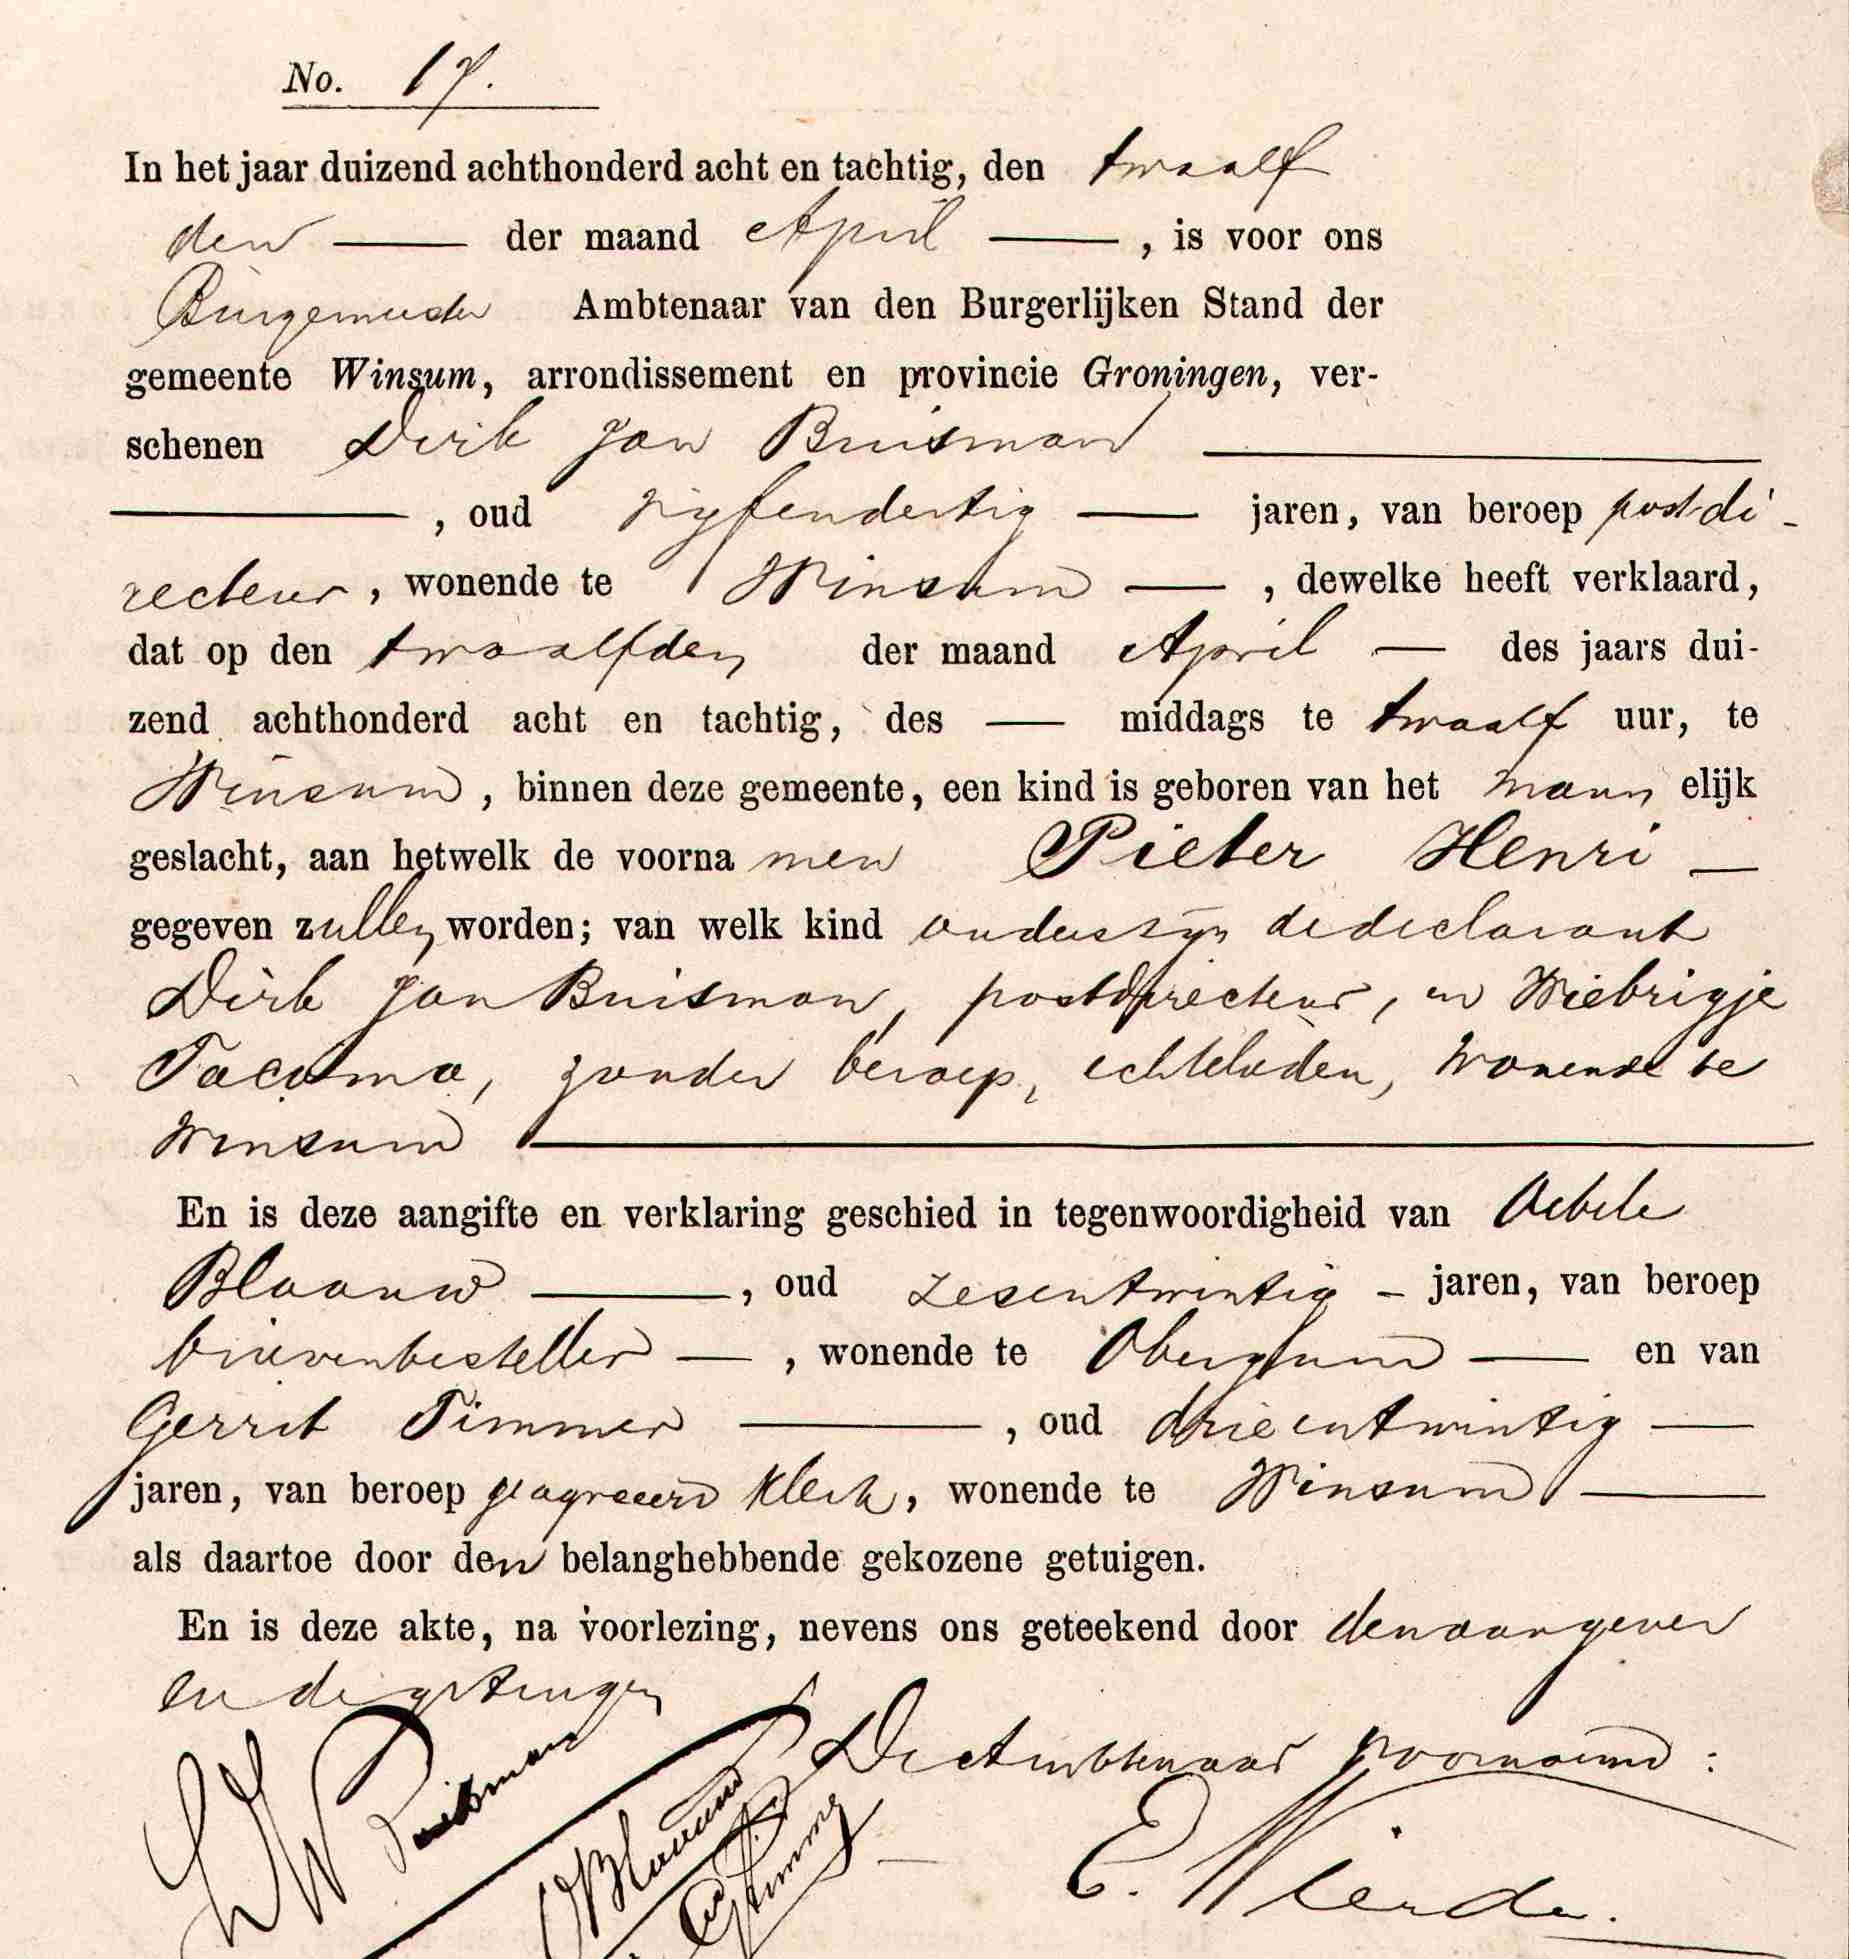 No. 17.
In het jaar duizend achthonderd acht en tachtig, den twaalf
den — der maand April —, is voor ons
Burgemeester Ambtenaar van den Burgerlijken Stand der
gemeente Winsum, arrondissement en provincie Groningen, ver-
schenen Dirk Jan Buisman —
—, oud vijfendertig — jaren, van beroep postdi-
recteur, wonende te Winsum —, dewelke heeft verklaard,
dat op den twaalfden der maand April — des jaars dui-
zend achthonderd acht en tachtig, des — middags te twaalf uur, te
Winsum, binnen deze gemeente, een kind is geboren van het mannelijk
geslacht, aan hetwelk de voornamen Pieter Henri —
gegeven zullen worden; van welk kind ouders zijn de declarant
Dirk Jan Buisman, postdirecteur, en Wiebrigje
Tacoma, zonder beroep, echtelieden, wonende te
Winsum —
En is deze aangifte en verklaring geschied in tegenwoordigheid van Oebele
Blaauw —, oud zesentwintig - jaren, van beroep
brievenbesteller —, wonende te Obergum — en van
Gerrit Timmer —, oud drieentwintig —
jaren, van beroep geagreeerd klerk, wonende te Winsum —
als daartoe door den belanghebbende gekozene getuigen.
En is deze akte, na voorlezing, nevens ons geteekend door den aangever
en de getuigen
De Ambtenaar voornoemd:
Buisman
O Blaauw
G Timmer
E. Wierda.